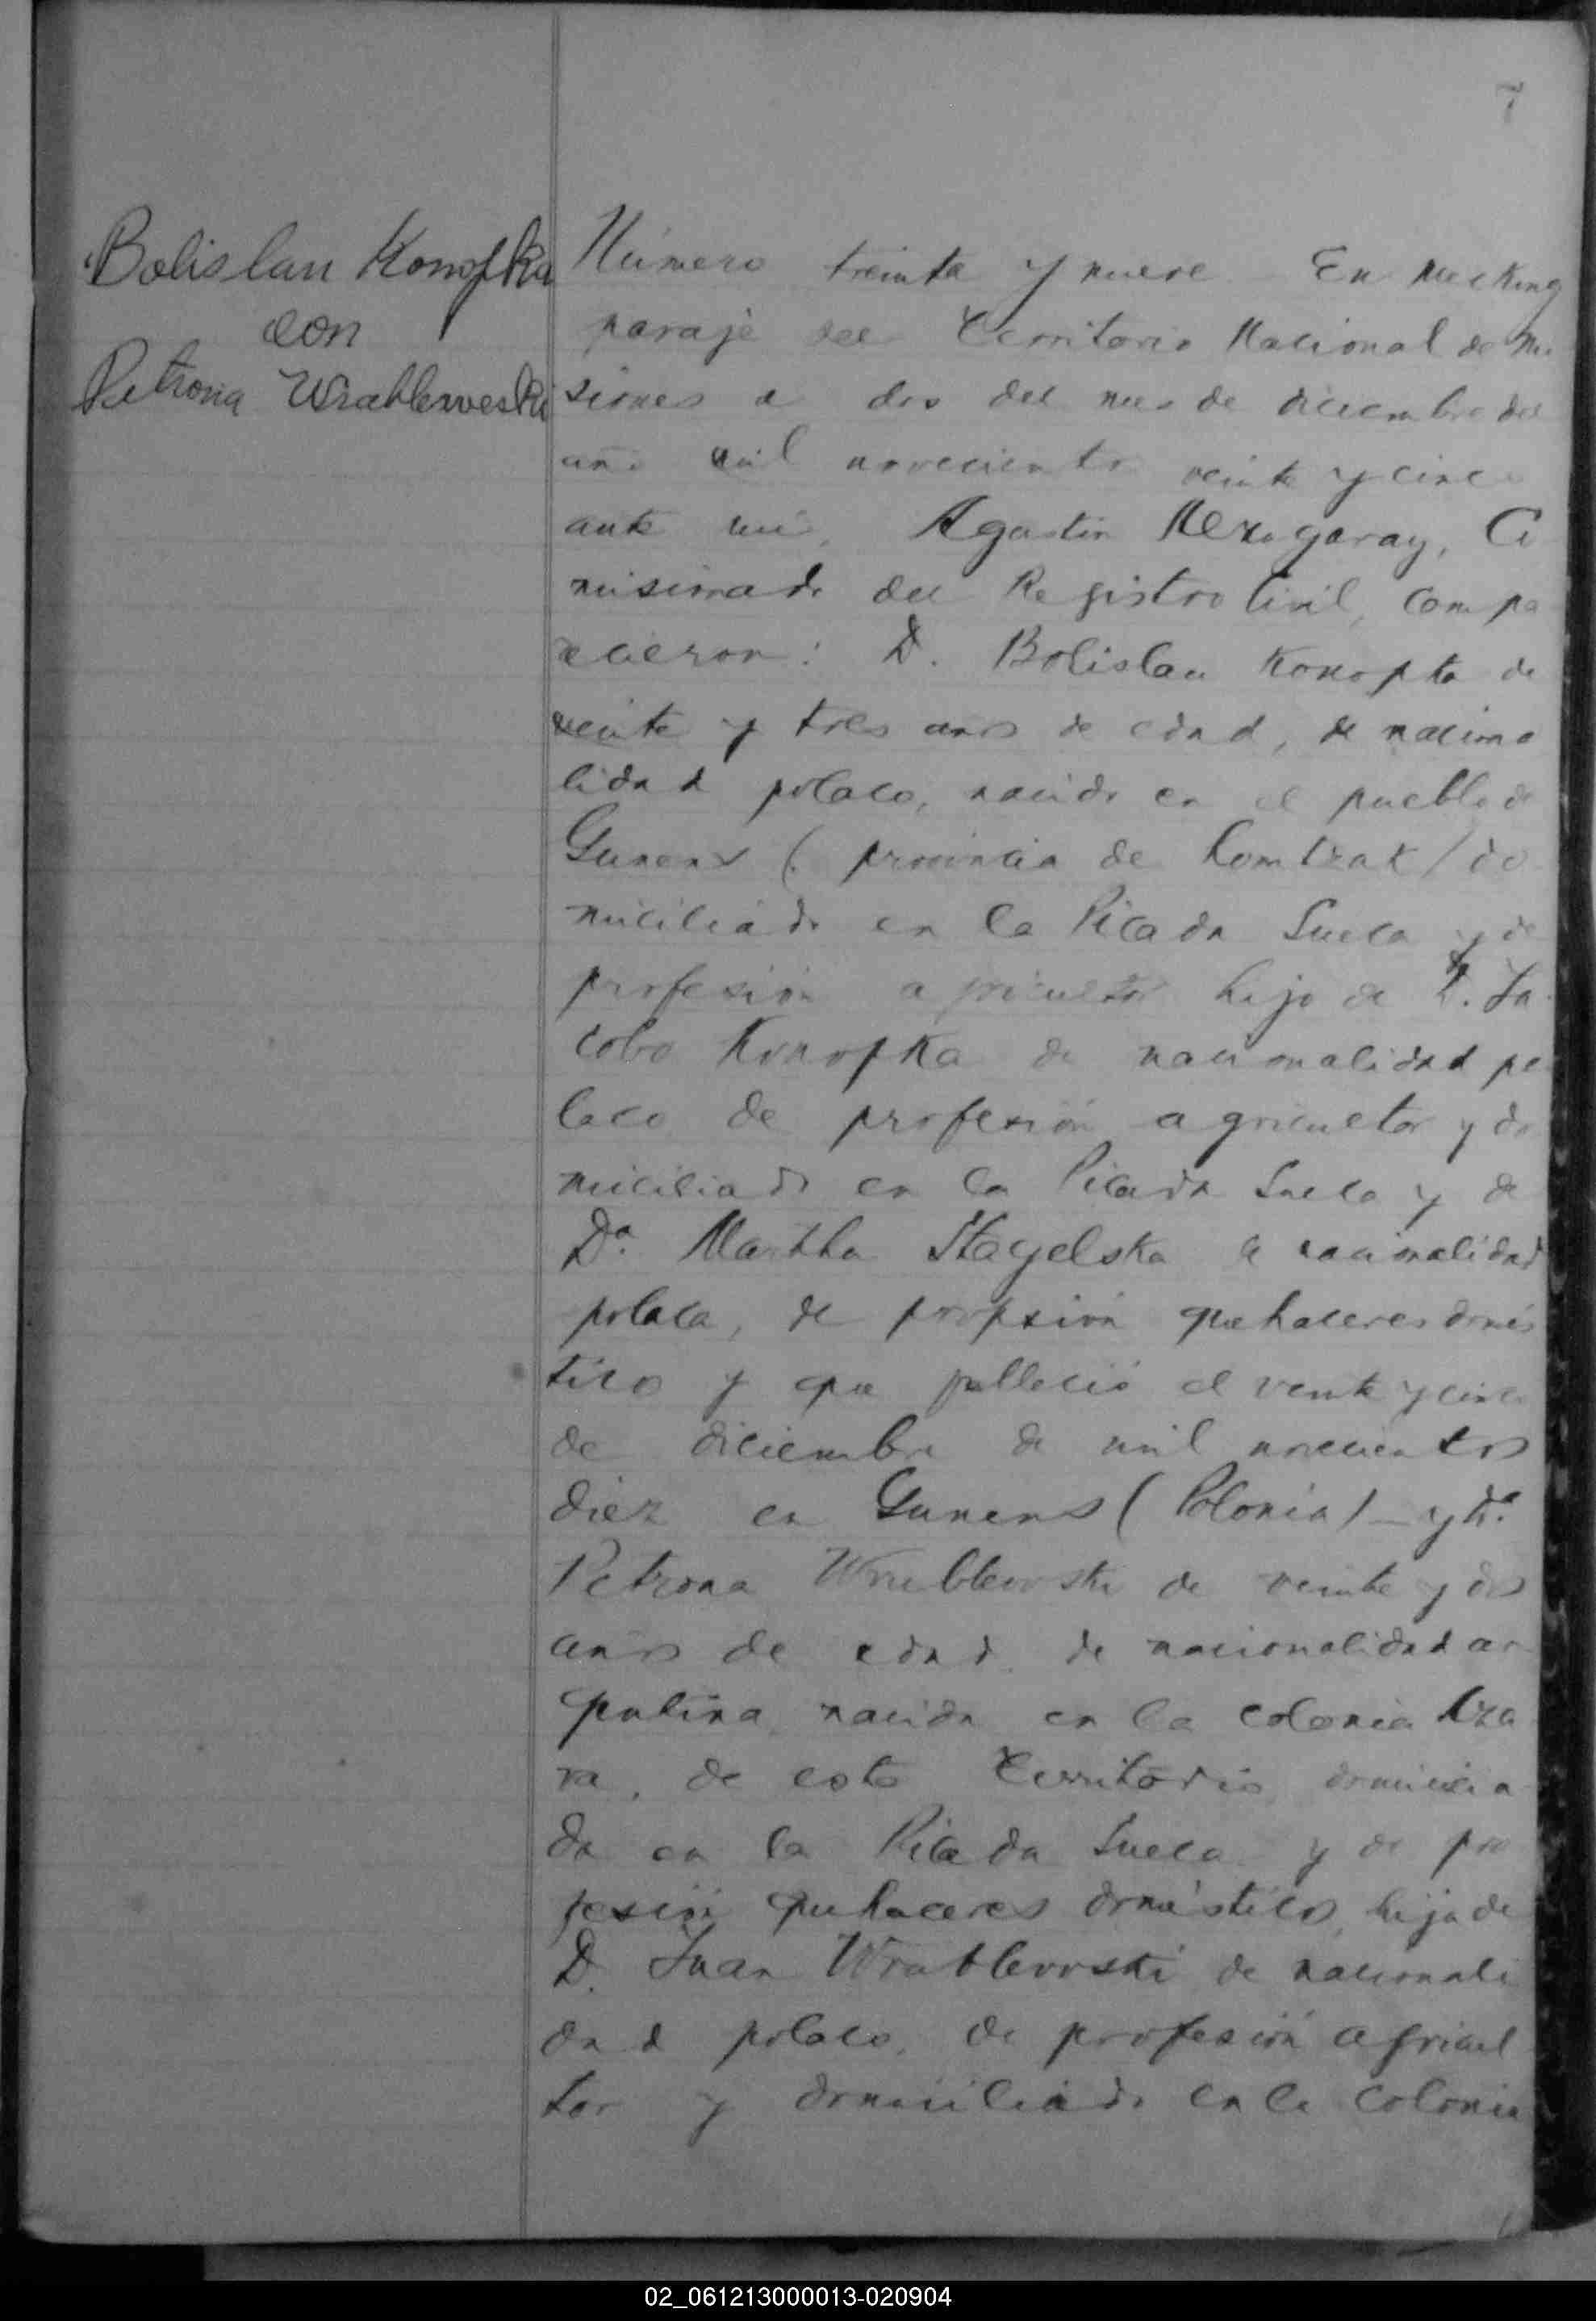 7
Bolislau Konofka
con
Petrona Wrablerweski
Número treinta y nueve En Mecking
paraje del Territorio Nacional de Mi
siones a dos del mes de diciembre del
año mil novecientos veinte y cinco
ante mi, Agustin Mezagaray, Co
misionado del Registro Civil, compa
recieron: D. Bolislau Konopka de
veinte y tres años de edad, de naciona
lidad polaco, nacido en el pueblo de
Gunens (provincia de Komtrak) do
miciliado en la Picada Sueca y de
profesión agricultor hijo de D. Ja
cobo Konopka de nacionalidad po
laco de profesión agricultor y do
miciliado en la Picada Sueca y de
Da. Martha Stagelska de nacionalidad
polaca, de profesión quehaceres domés
tico y que falleció el veinte y cinco
de diciembre de mil novecientos
diez en Gunens (Polonia) - y Da.
Petrona Wrublewski de veinte y dos
años de edad, de nacionalidad ar
gentina, nacida en la colonia Aza
ra, de este Territorio, domicilia
da en la Picada Sueca y de pro
fesión quehaceres domésticos, hija de
D. Juan Wrublewski de nacionali
dad polaco, de profesión agricul
tor y domiciliado en la Colonia
02_061213000013-020904